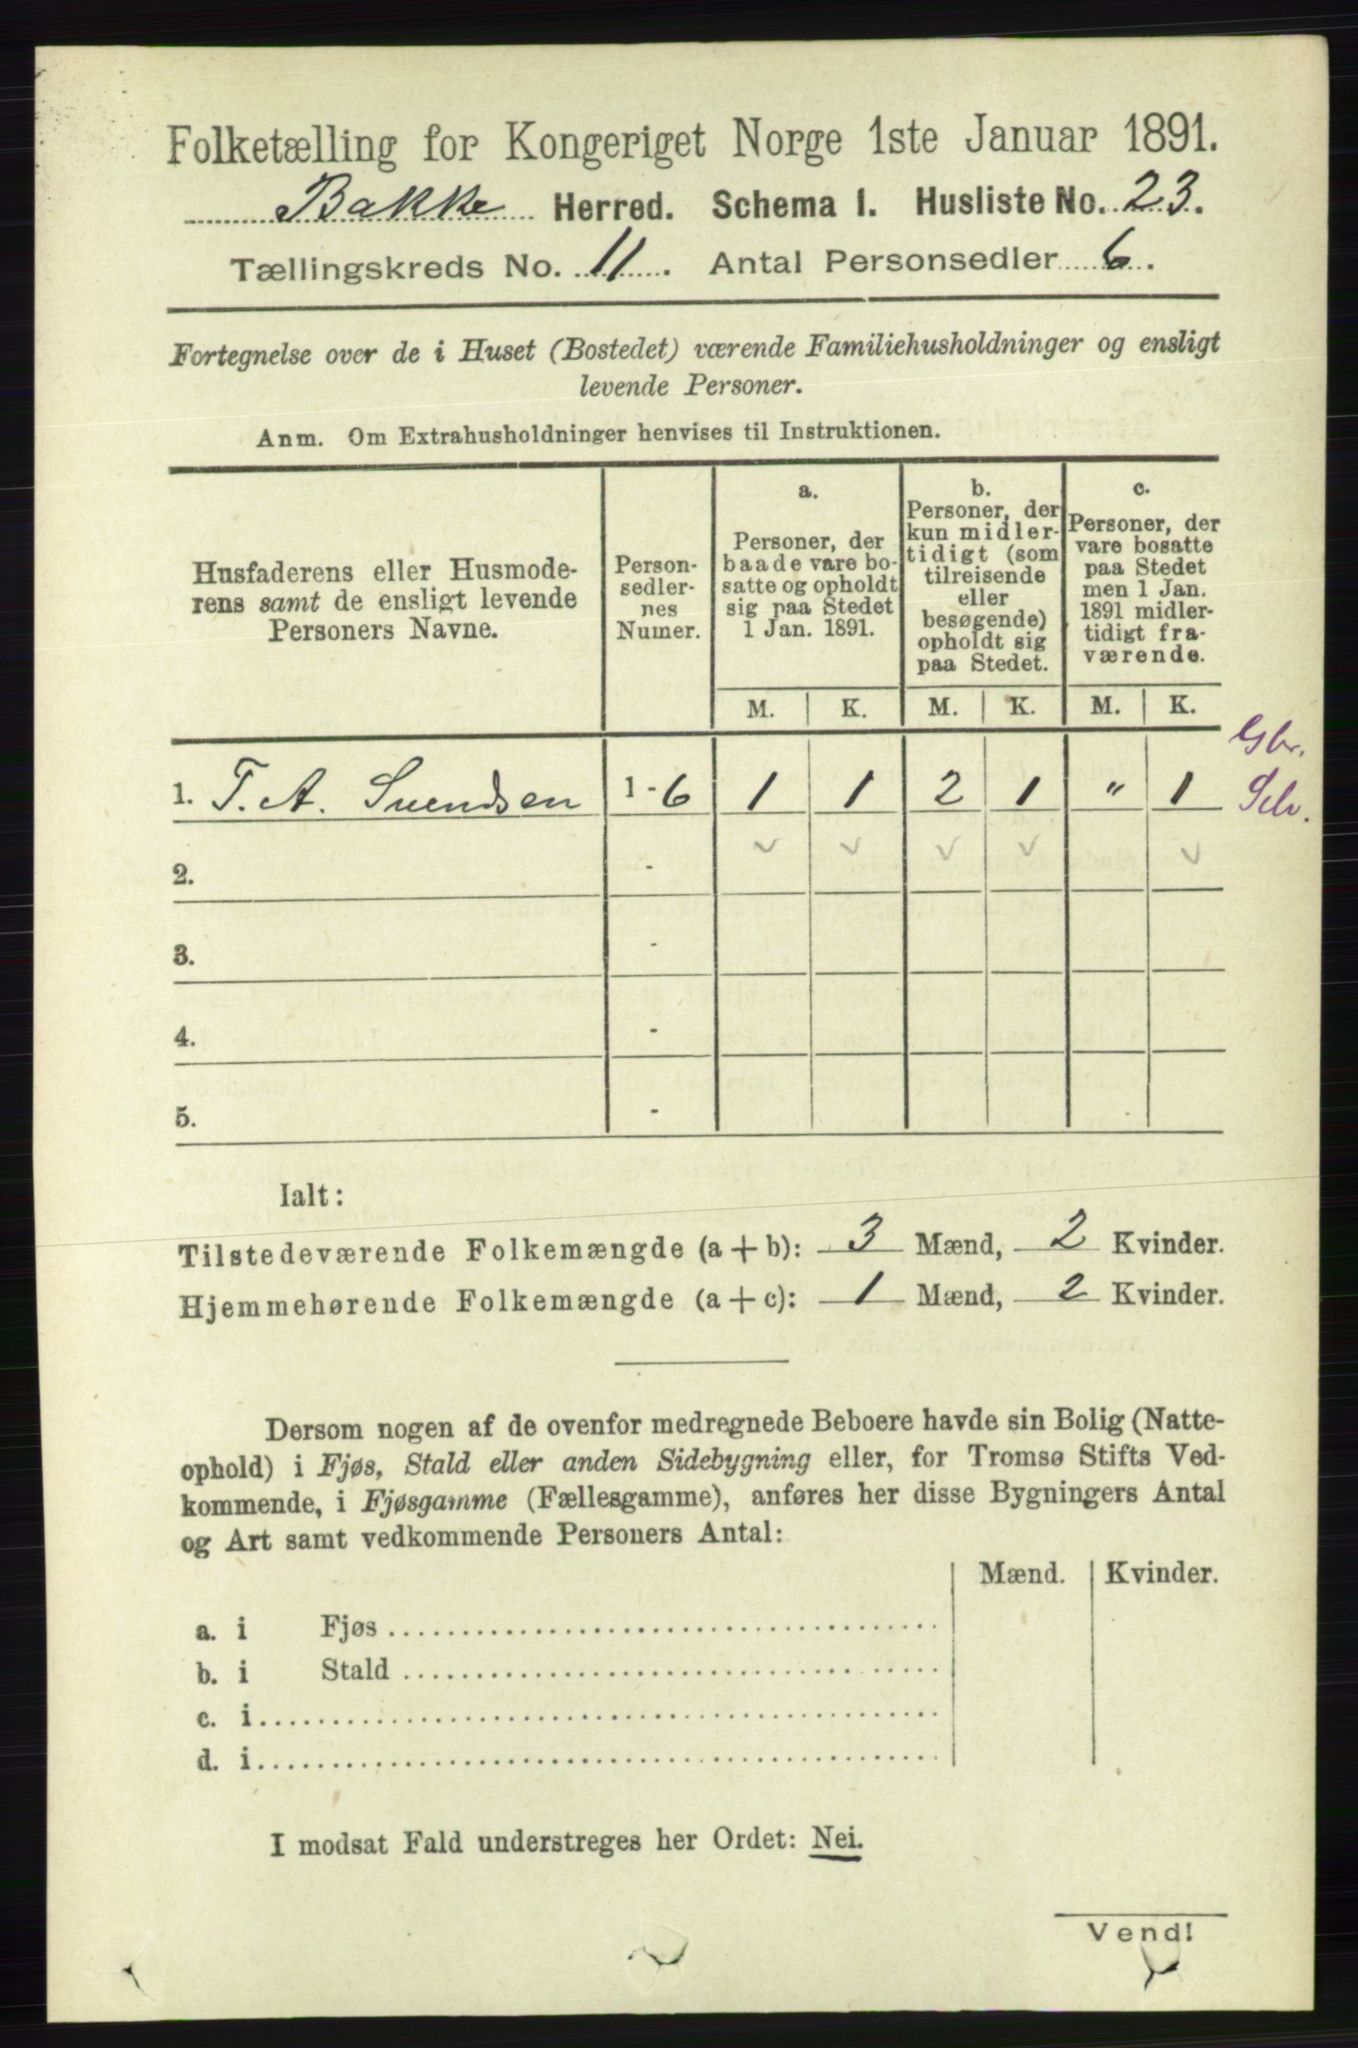 Folketælling for Kongeriget Norge 1ste Januar 1891.
Bakke Herred. Schema 1. Husliste No. 23.
Tællingskreds No. 11. Antal Personsedler 6.
Fortegnelse over de i Huset (Bostedet) værende Familiehusholdninger og ensligt
levende Personer.
Anm. Om Extrahusholdninger henvises til Instruktionen.
Husfaderens eller Husmode-
rens samt de ensligt levende
Personers Navne.
Person-
sedler-
nes
Numer.
a.
Personer, der
baade vare bo-
satte og opholdt
sig paa Stedet
1 Jan. 1891.
b.
Personer, der
kun midler-
tidigt (som
tilreisende
eller
besøgende)
opholdt sig
paa Stedet.
c.
Personer, der
vare bosatte
paa Stedet
men 1 Jan.
1891 midler-
tidigt fra-
værende.
M. K. M. K. M. K.
Gbr.
1. T. A. Svendsen 1-6 1 1 2 1 " 1 Selv.
2. -
3. -
4. -
5. -
Ialt:
Tilstedeværende Folkemængde (a + b): 3 Mænd, 2 Kvinder.
Hjemmehørende Folkemængde (a + c): 1 Mænd, 2 Kvinder.
Dersom nogen af de ovenfor medregnede Beboere havde sin Bolig (Natte-
ophold) i Fjøs, Stald eller anden Sidebygning eller, for Tromsø Stifts Ved-
kommende, i Fjøsgamme (Fællesgamme), anføres her disse Bygningers Antal
og Art samt vedkommende Personers Antal:
Mænd. Kvinder.
a. i Fjøs
b. i Stald
c. i
d. i
I modsat Fald understreges her Ordet: Nei.
Vend!